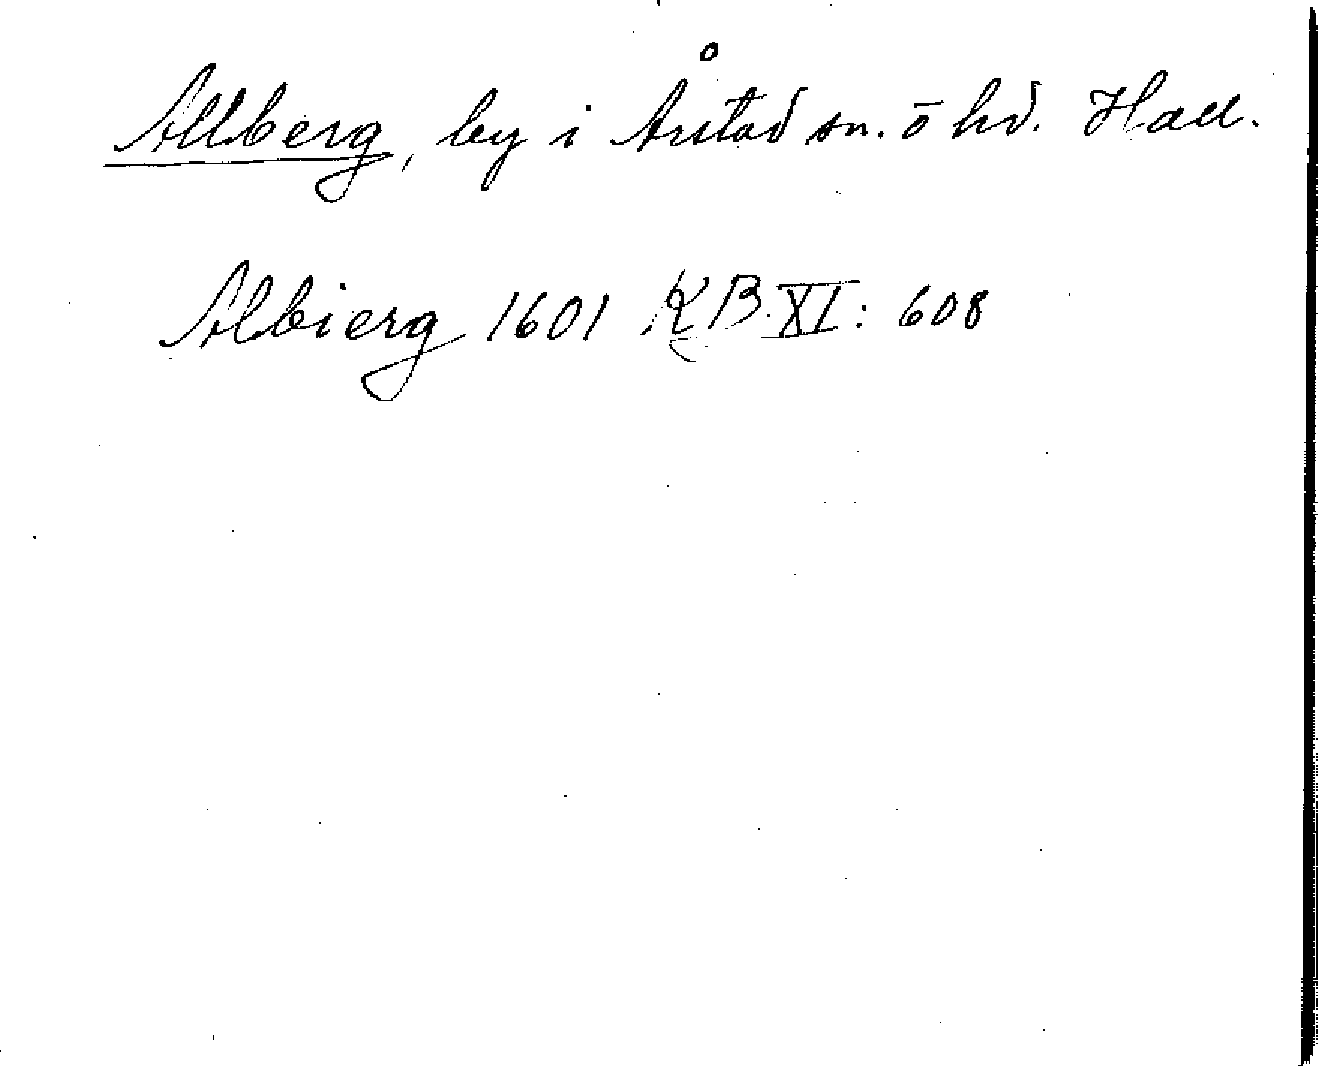 Allberg, by i Årstad sn. ö hd. Hall.
Albierg 1601 KB XI: 608